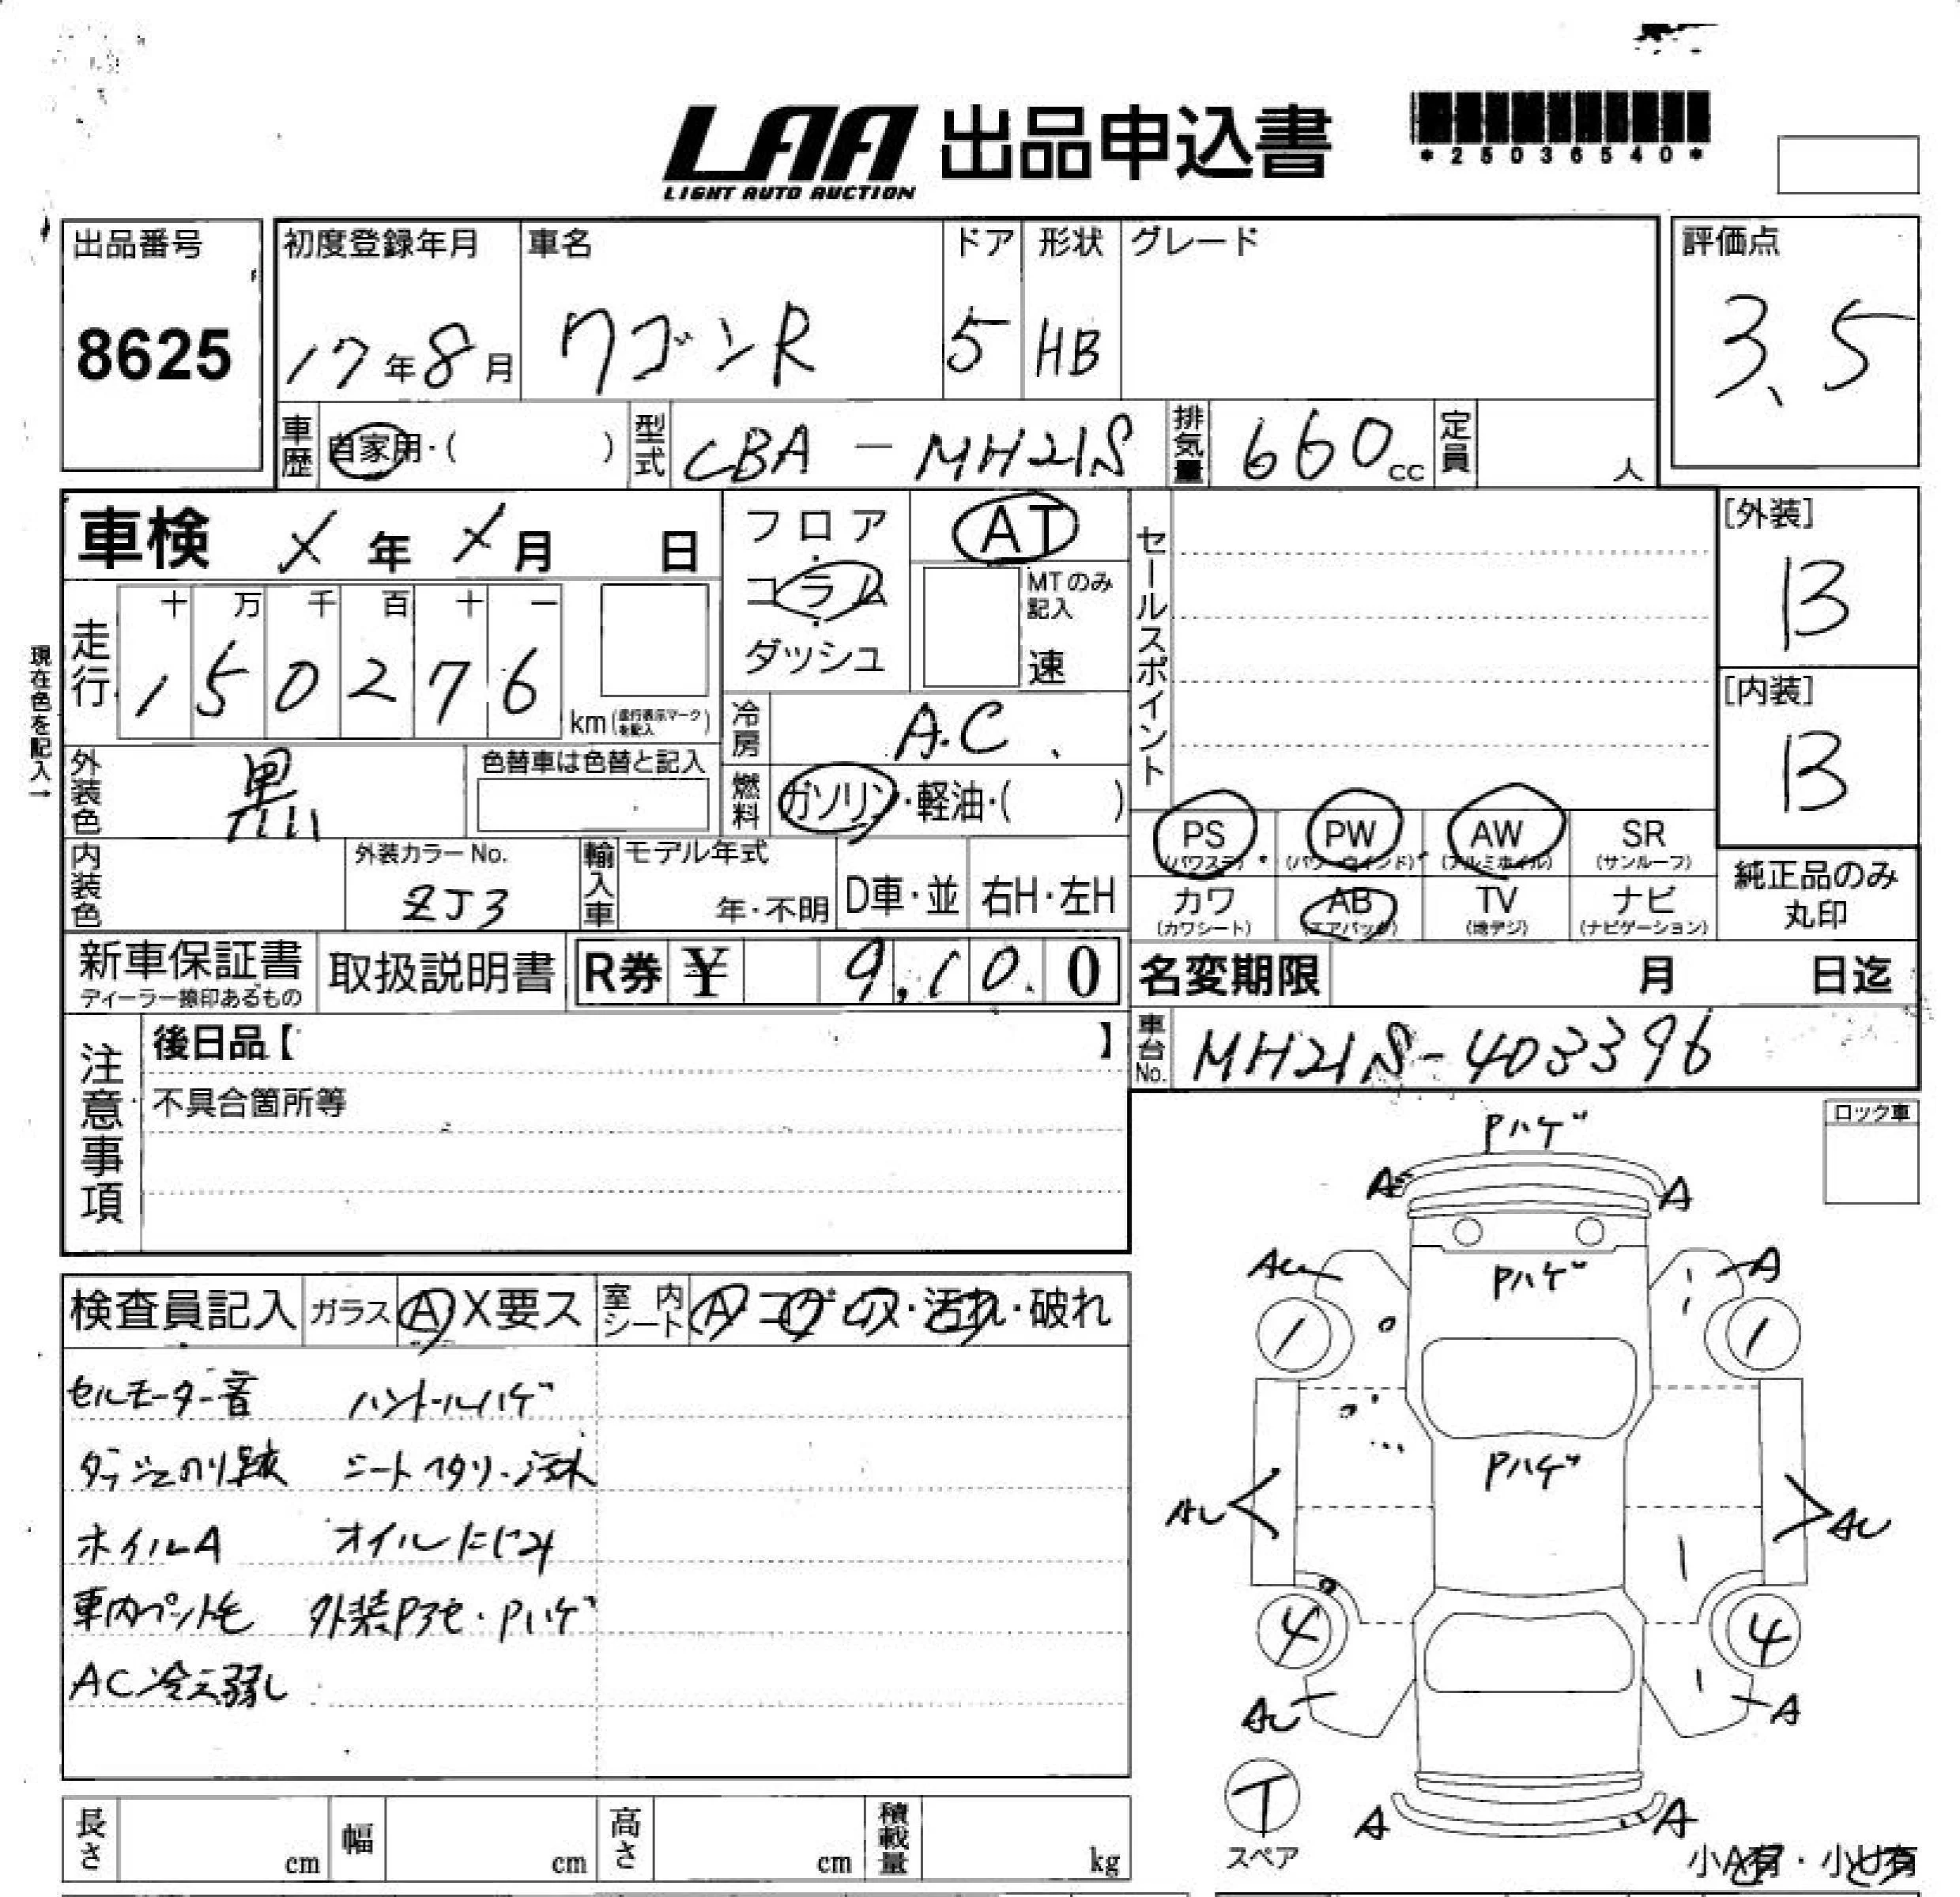 LAA 出品申込書
LIGHT AUTO AUCTION
*25036540*
出品番号
8625
初度登録年月
17年8月
車名
ワゴンR
ドア
5
形状
HB
グレード
評価点
3.5
車歴
自家用・( )
型式
CBA-MH21S
排気量
660cc
定員
人
車検 X年X月 日
フロア・コラム・ダッシュ
AT
MTのみ記入
速
セールスポイント
[外装]
B
[内装]
B
現在色を記入→
走行
十 万 千 百 十 一
1 5 0 2 7 6
km(走行表示マークを記入)
冷房
A.C
外装色
黒
色替車は色替と記入
燃料
ガソリン・軽油・( )
内装色
外装カラーNo.
ZJ3
輸入車
モデル年式
年・不明
D車・並
右H・左H
PS
(パワステ)
PW
(パワーウインド)
AW
(アルミホイル)
SR
(サンルーフ)
カワ
(カワシート)
AB
(エアバッグ)
TV
(地デジ)
ナビ
(ナビゲーション)
純正品のみ
丸印
新車保証書
ディーラー捺印あるもの
取扱説明書
R券 ¥ 9,100
名変期限 月 日迄
注意事項
後日品【 】
不具合箇所等
車台No.
MH21S-403396
ロック車
Pハゲ
A A
AU A
Pハゲ
1 1
Pハゲ
AU AU
4 4
AU A
T
スペア
A A
小A有・小U有
検査員記入
ガラス
A X要ス
室内シート
A・コゲ・穴・汚れ・破れ
セルモーター音 ハンドルハゲ
ダッシュのり跡 シートヘタリ・汚れ
ホイルA オイルにじみ
車内ペット毛 外装Pアセ・Pハゲ
AC冷え弱し
長さ cm
幅 cm
高さ cm
積載量 kg